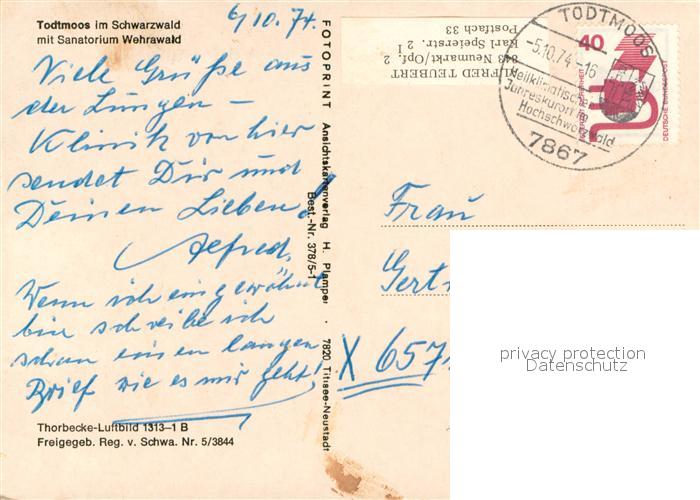 Todtmoos im Schwarzwald
mit Sanatorium Wehrawald
6/10.74.
Viele Grüße aus
der Lungen –
Klinik von hier
sendet Dir und
Deinen Lieben!
Alfred.
Wenn ich eingewöhnt
bin schreibe ich
schon einen langen
Brief wie es mir geht!
Thorbecke-Luftbild 1313–1 B
Freigegeb. Reg. v. Schwa. Nr. 5/3844
FOTOPRINT Ansichtskartenverlag H. Plamper · 7820 Titisee-Neustadt
Best.-Nr. 378/5-1
ALFRED TEUBERT
843 Neumarkt/Opf. 2
Karl Speierstr. 2 I
Postfach 33
TODTMOOS
-5.10.74-16
Heilklimatischer
Jahreskurort im
Hochschwarzwald
7867
40
DEUTSCHE BUNDESPOST
Frau
Gert
X 657
privacy protection
Datenschutz